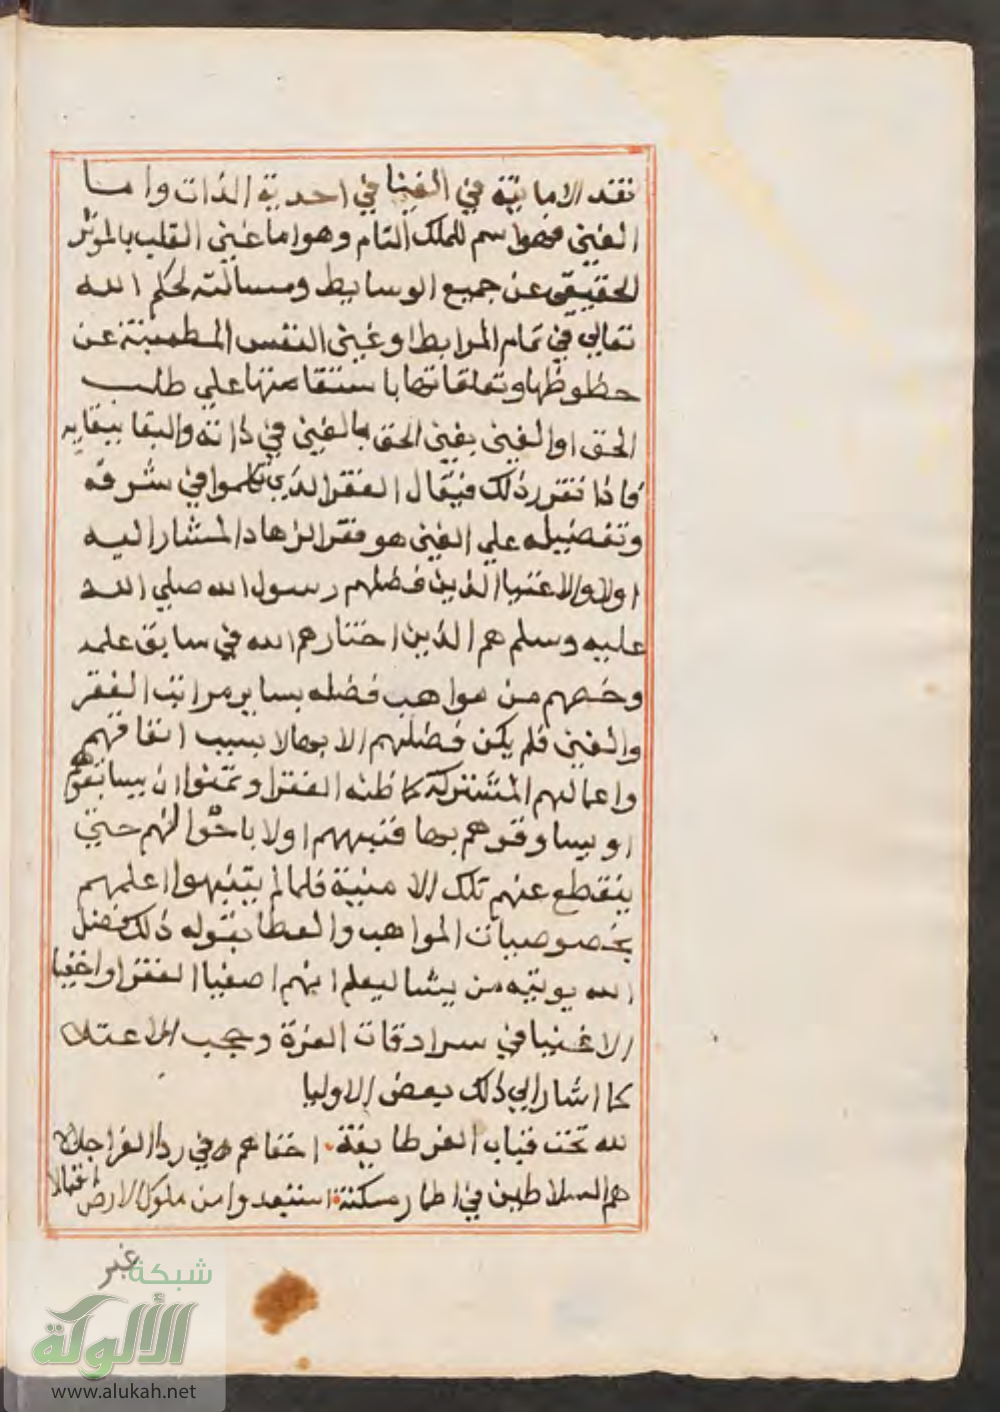 نقد الامانية في الفنا في احدية الذات واما
الغني فهو اسم للملك التام وهو اما غني القلب بالموثر
الحقيقي عن جميع الوسايط ومسالته لحكم الله
تعالي في تمام المرابط او غني النفس المطمينة عن
حظوظها وتعلقاتها باستقامتها علي طلب
الحق او الغني بغني الحق بالغني في ذاته والبقا ببقايه
فاذا تقرر ذلك فيقال الفقر الذي تكلموا في شرفه
وتفضيله علي الغني هو فقر الزهاد المشار اليه
اولا والاغنيا الذين فضلهم رسول الله صلي الله
عليه وسلم هم الذين اختارهم الله في سابق علمه
وخصهم من مواهب فضله بساير مراتب الفقر
والغني فلم يكن فضلهم الا بها لا بسبب انفاقهم
واعمالهم المشتركة كما ظنه الفقرا وتمنوا ان يسابقوهم
او يساوقوهم بها فنبههم اولا باحوالهم حتي
ينقطع عنهم تلك الامنية فلما لم يتنبهوا اعلمهم
بخصوصيات المواهب والعطا بقوله ذلك فضل
الله يوتيه من يشا ليعلم انهم اصفيا الفقرا واخفيا
الاغنيا في سرادقات العزة وحجب الاعتلا
كما اشار الي ذلك بعض الاوليا
لله تحت قباب العز طايفة اخفاهم في ردا الفقر اجلالا
هم السلاطين في اطمار مسكنة استعبدوا من ملوك الارض اقيالا
غبر
شبكة
الألوكة
www.alukah.net